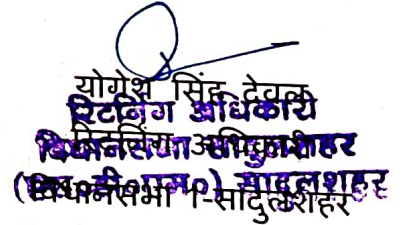 योगेश सिंह देवल
रिटर्निंग अधिकारी
रिटर्निंग अधिकारी
विधानसभा सादुलशहर
(एस०डी०एम०) सादुलशहर
विधानसभा 1-सादुलशहर